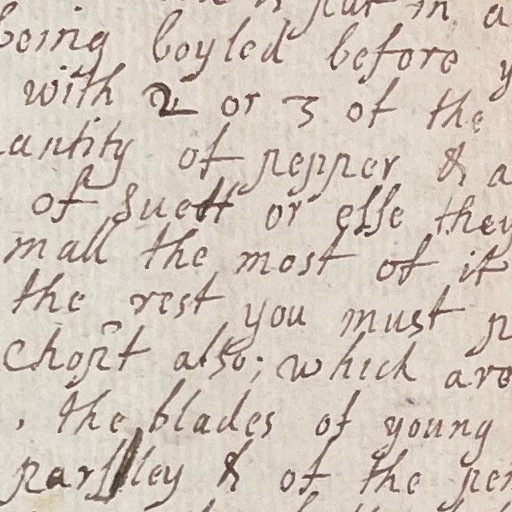 put in a
being boyled before y
with 2 or 3 of the
antity of pepper & a
of suett or else they
mall the most of it
the rest you must p
Chopt also; which are
, the blades of young
parsley & of the pen